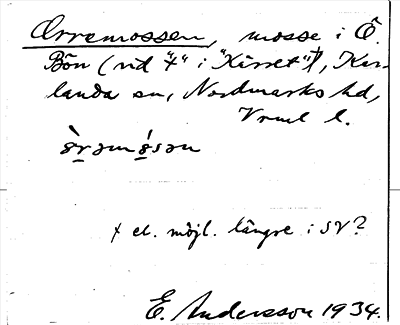 Orremossen, mosse i Ö.
Bön (vid "t" i "Kirret"†), Kär-
landa sn, Nordmarks hd,
Vrml l.
† el. möjl. längre i SV?
E. Andersson 1934.